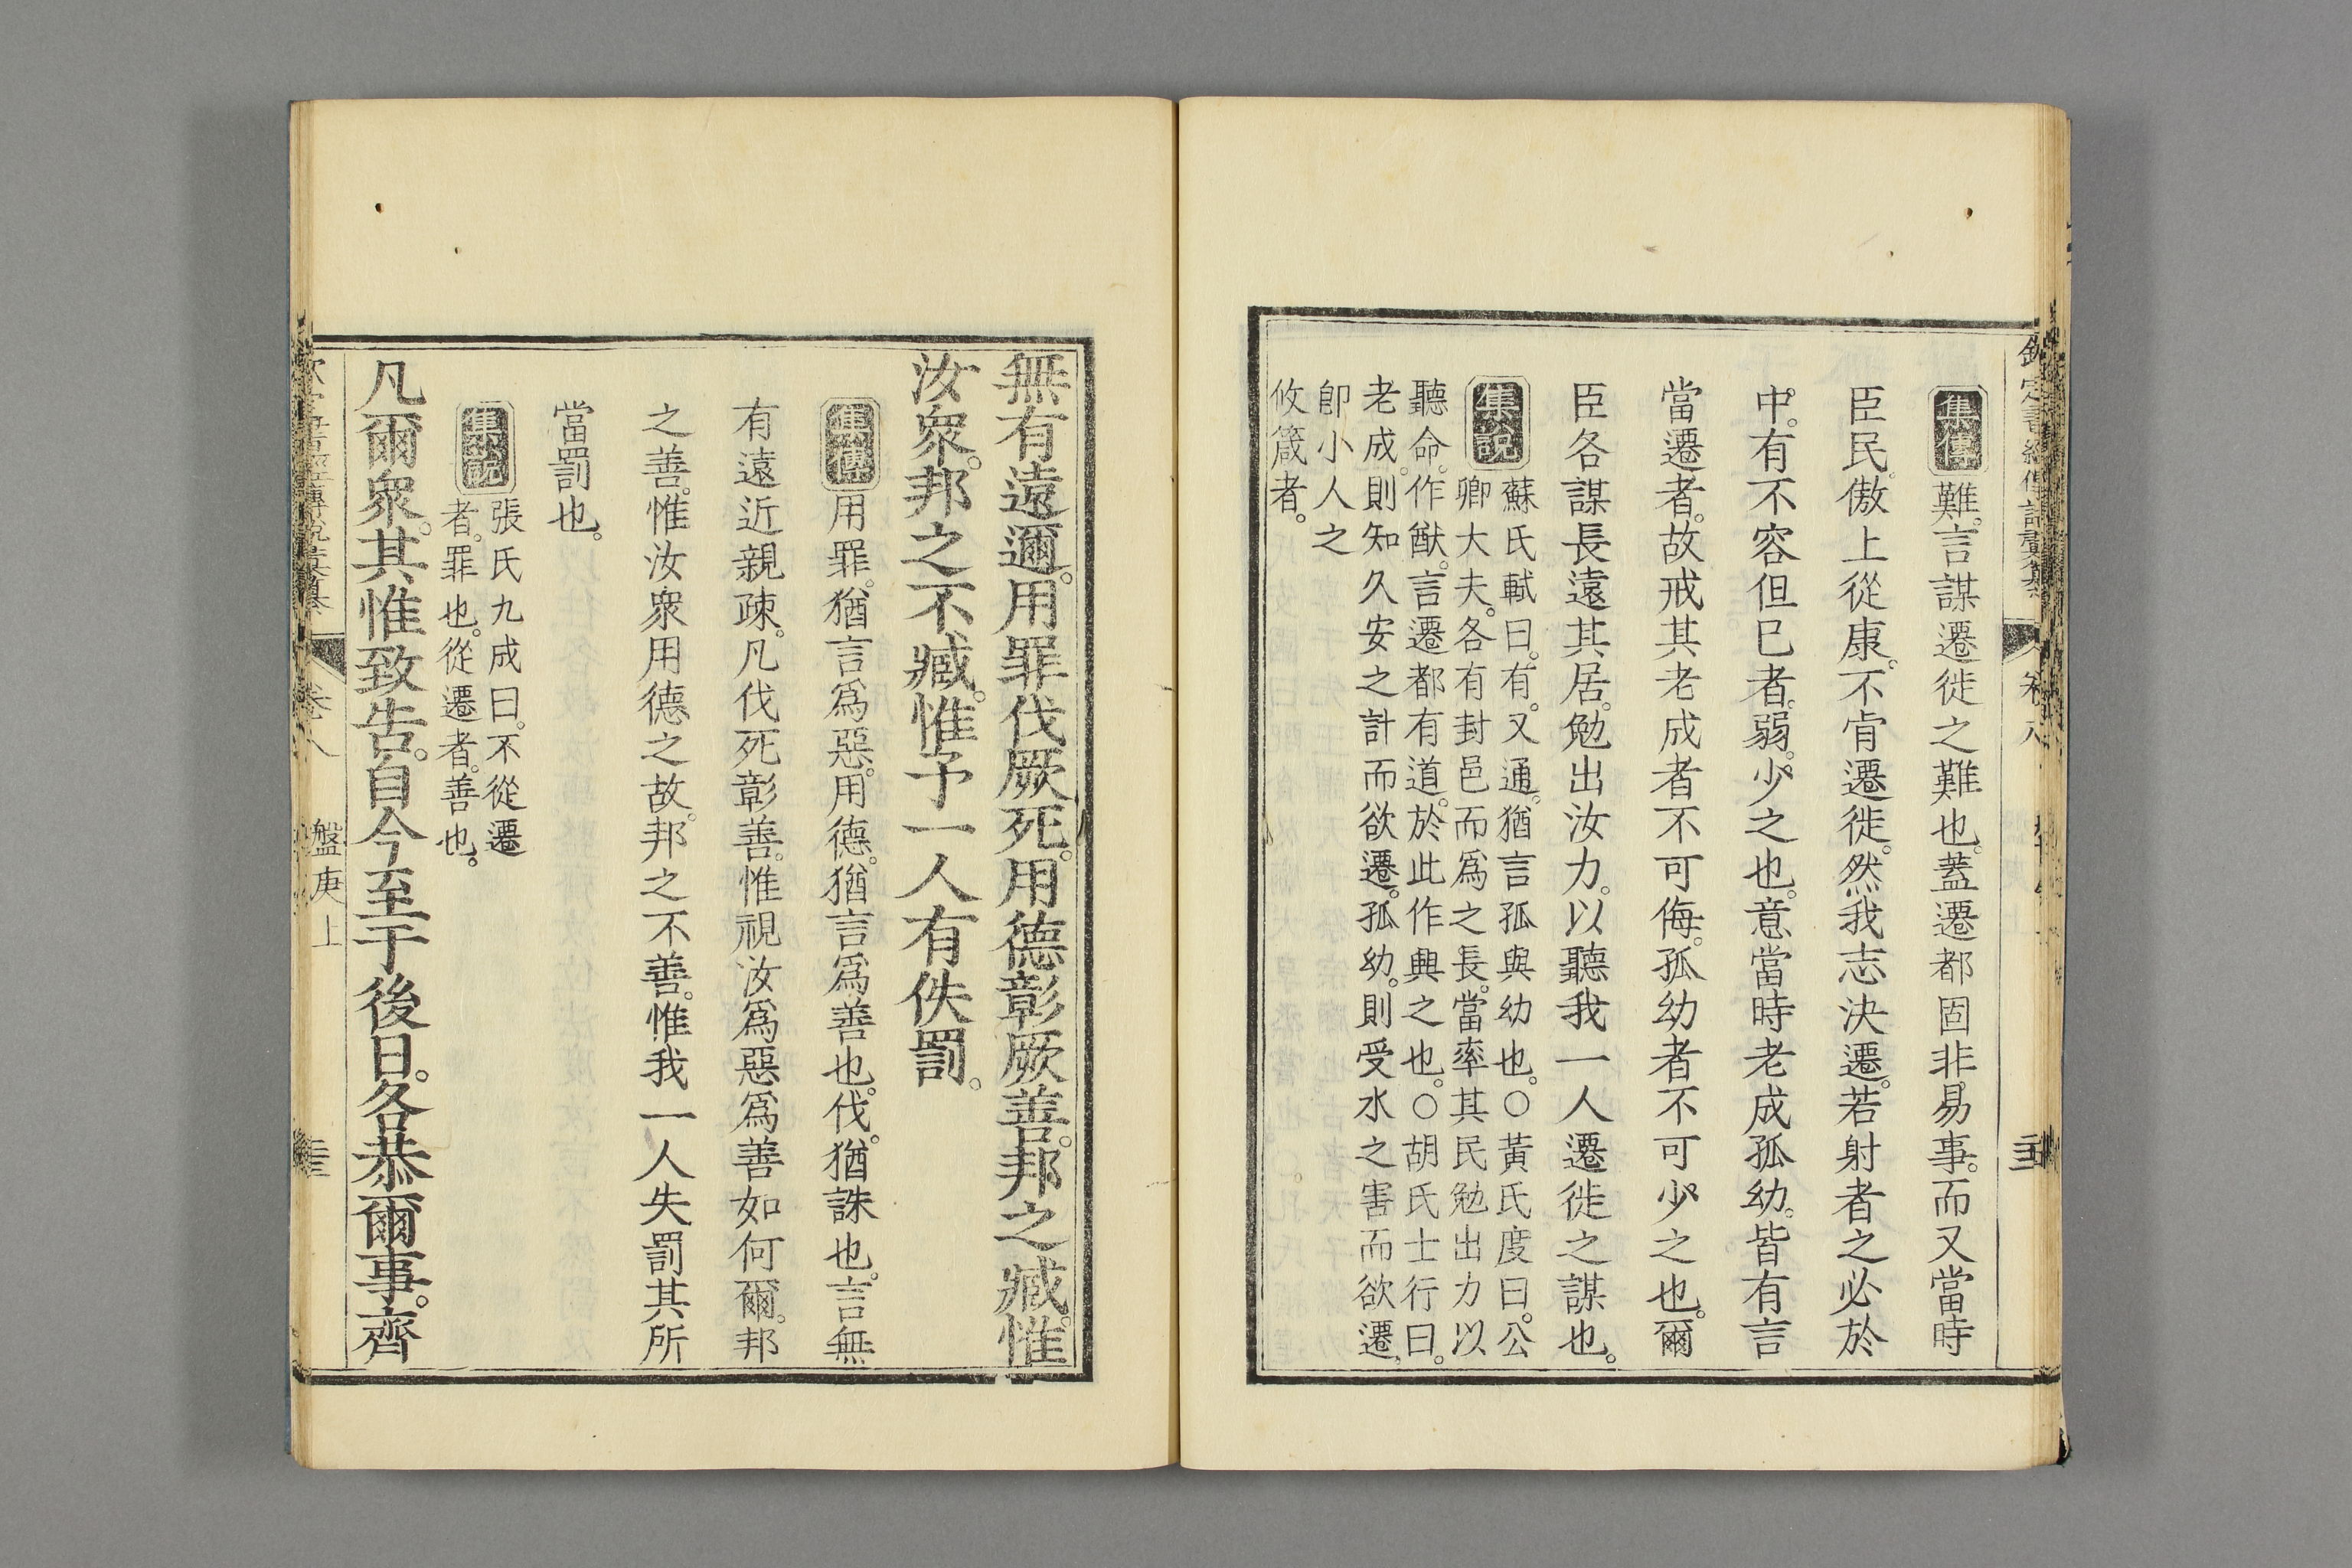 欽定書經傳說彙纂 卷八
集傳 難。言謀遷徙之難也。蓋遷都固非易事。而又當時
臣民。傲上從康。不肯遷徙。然我志決遷。若射者之必於
中。有不容但已者。弱。少之也。意當時老成孤幼。皆有言
當遷者。故戒其老成者不可侮。孤幼者不可少之也。爾
臣各謀長遠其居。勉出汝力。以聽我一人遷徙之謀也。
集說 蘇氏軾曰。有。又通。猶言孤與幼也。○黃氏度曰。公
卿大夫。各有封邑而爲之長。當率其民勉出力以
聽命。作猷。言遷都有道。於此作興之也。○胡氏士行曰。
老成。則知久安之計而欲遷。孤幼。則受水之害而欲遷。
卽小人之
攸箴者。
無有遠邇。用罪伐厥死。用德彰厥善。邦之臧。惟
汝衆。邦之不臧。惟予一人有佚罰。
集傳 用罪。猶言爲惡。用德。猶言爲善也。伐。猶誅也。言無
有遠近親疎。凡伐死彰善。惟視汝爲惡爲善如何爾。邦
之善。惟汝衆用德之故。邦之不善。惟我一人失罰其所
當罰也。
集說 張氏九成曰。不從遷
者。罪也。從遷者。善也。
凡爾衆。其惟致告。自今至于後日。各恭爾事。齊
欽定書經傳說彙纂 卷八 盤庚上